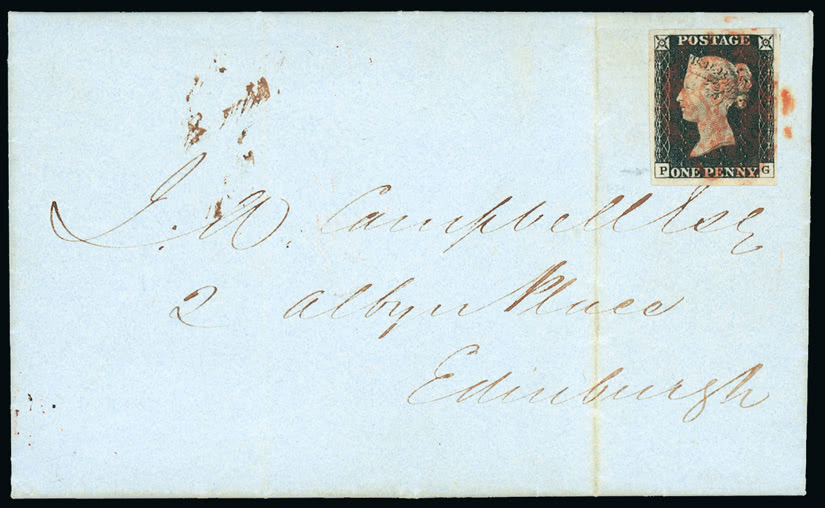 POSTAGE
P ONE PENNY G
J. A. Campbell Esq
2 Albyn Place
Edinburgh